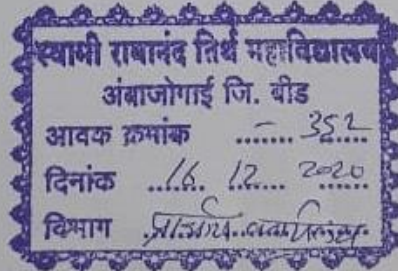 स्वामी रामानंद तिर्थ महाविद्यालय
अंबाजोगाई जि. बीड
आवक क्रमांक ....... - 352
दिनांक ...16... 12... 2020
विभाग